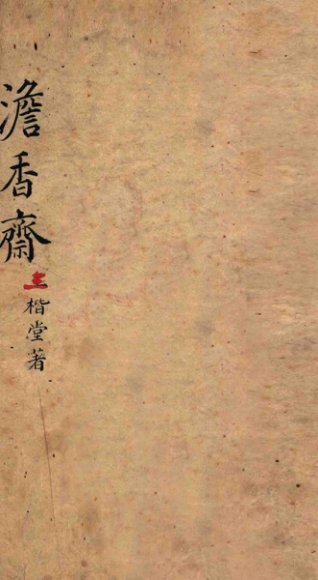 澹香齋
楷堂著